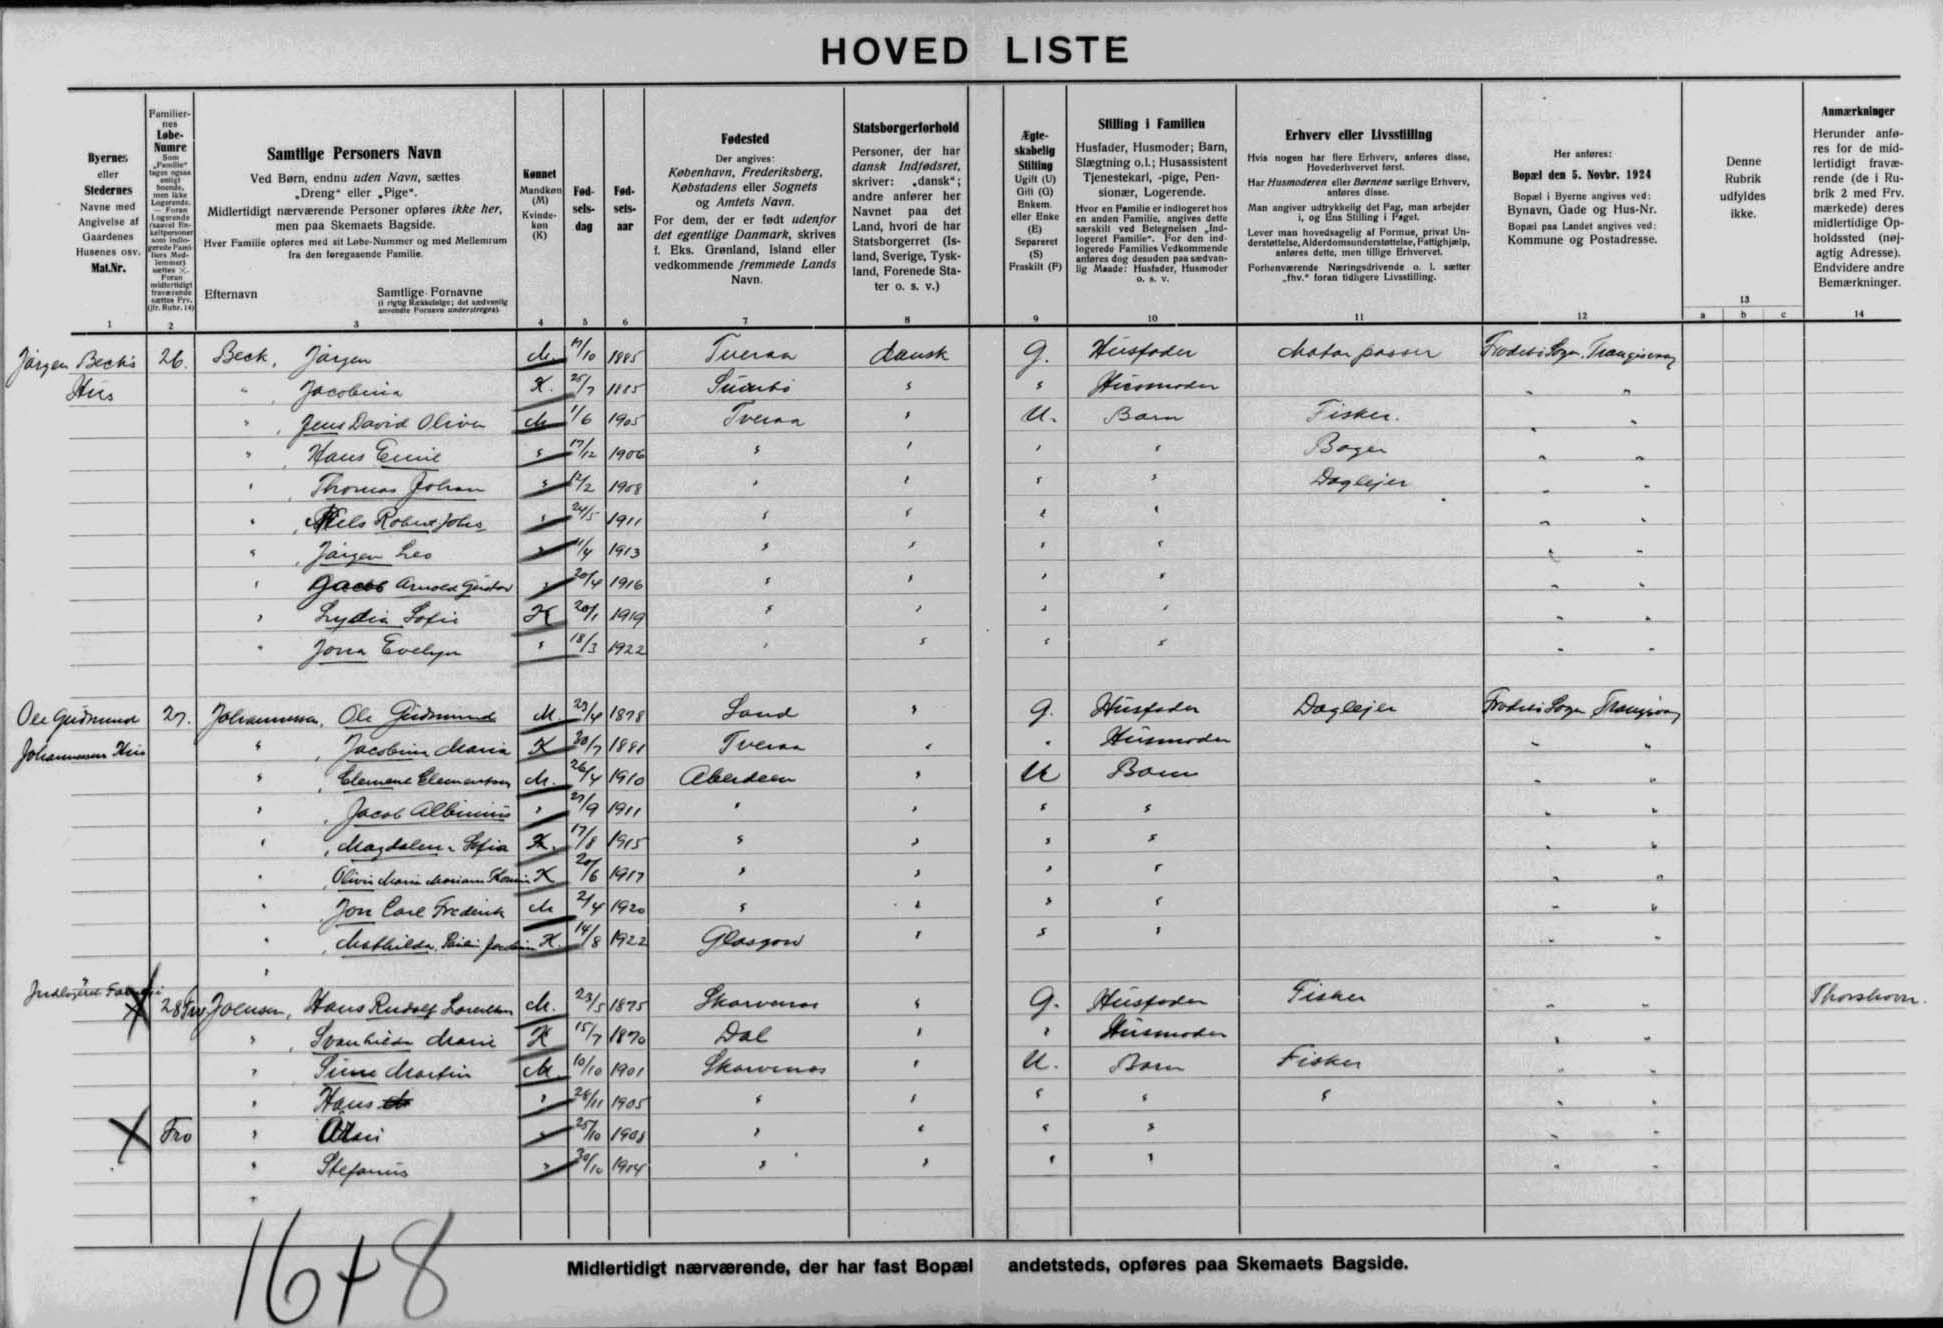 HOVED LISTE
Byernes eller Stedernes Navne med Angivelse af Gaardenes Husenes osv. Mat.Nr.
Familiernes Løbe-Numre
Samtlige Personers Navn
Ved Børn, endnu uden Navn, sættes „Dreng" eller „Pige".
Midlertidigt nærværende Personer opføres ikke her, men paa Skemaets Bagside.
Hver Familie opføres med sit Løbe-Nummer og med Mellemrum fra den foregaaende Familie.
Efternavn
Samtlige Fornavne
(i rigtig Rækkefølge; det sædvanlig anvendte Fornavn understreges).
Kønnet
Mandkøn (M)
Kvindekøn (K)
Fødselsdag
Fødselsaar
Fødested
Der angives: København, Frederiksberg, Købstadens eller Sognets og Amtets Navn.
For dem, der er født udenfor det egentlige Danmark, skrives f. Eks. Grønland, Island eller vedkommende fremmede Lands Navn.
Statsborgerforhold
Personer, der har dansk Indfødsret, skriver: „dansk"; andre anfører her Navnet paa det Land, hvori de har Statsborgerret (Island, Sverige, Tyskland, Forenede Stater o. s. v.)
Ægteskabelig Stilling
Ugift (U)
Gift (G)
Enkem. eller Enke (E)
Separeret (S)
Fraskilt (F)
Stilling i Familien
Husfader, Husmoder; Barn, Slægtning o.l.; Husassistent Tjenestekarl, -pige, Pensionær, Logerende.
Hvor en Familie er indlogeret hos en anden Familie, angives dette særskilt ved Betegnelsen „Indlogeret Familie". For den indlogerede Families Vedkommende anføres dog desuden paa sædvanlig Maade: Husfader, Husmoder o. s. v.
Erhverv eller Livsstilling
Hvis nogen har flere Erhverv, anføres disse, Hovederhvervet først.
Har Husmoderen eller Børnene særlige Erhverv, anføres disse.
Man angiver udtrykkelig det Fag, man arbejder i, og Ens Stilling i Faget.
Lever man hovedsagelig af Formue, privat Understøttelse, Alderdomsunderstøttelse, Fattighjælp, anføres dette, men tillige Erhvervet.
Forhenværende Næringsdrivende o. l. sætter „fhv." foran tidligere Livsstilling.
Her anføres:
Bopæl den 5. Novbr. 1924
Bopæl i Byerne angives ved: Bynavn, Gade og Hus-Nr.
Bopæl paa Landet angives ved: Kommune og Postadresse.
Denne Rubrik udfyldes ikke.
Anmærkninger
Herunder anføres for de midlertidigt fraværende (de i Rubrik 2 med Frv. mærkede) deres midlertidige Opholdssted (nøjagtig Adresse). Endvidere andre Bemærkninger.
1 2 3 4 5 6 7 8 9 10 11 12 13 a b c 14
Jørgen Becks 26. Beck, Jørgen M. 1885 Tveraa dansk G. Husfader Motorpasser
Hus " Jacobina K. 25/7 1885 " " Husmoder " "
" Jens David Oliver M 1/6 1905 Tveraa " U. Barn Fisker. " "
" Hans Emil " 17/12 1906 " " " " Bager " "
" Thomas Johan " 12/2 1908 " " " " Daglejer " "
" Niels Robert Johs " 24/5 1911 " " " " " "
" Jørgen Leo " 1913 " " " " " "
" Jacob Arnold Gustav " 20/4 1916 " " " " " "
" Lydia Sofie K 20/1 1919 " " " " " "
" Jona Evelyn " 18/3 1922 " " " " " "
Ole Gudmund 27. Johannessen, Ole Gudmund M. 23/4 1878 Sand " G. Husfader Daglejer
Johannessens Hus " Jacobina Maria K 30/7 1881 Tveraa " " Husmoder " "
" Clement Clementsen M. 26/4 1910 Aberdeen " U Barn " "
" Jacob Albinius " 27/9 1911 " " " " " "
" Magdalena Sofia K. 17/8 1915 " " " " " "
" K 20/6 1917 " " " " " "
" Jon Carl Frederik M 2/4 1920 " " " " " "
" Mathilda K. 14/8 1922 Glasgow " " " " "
Indlogeret Familie 28 Frv. Joensen, Hans Rudolf M. 23/5 1875 Skarvenes " G. Husfader Fisker " " Thorshavn.
" Svanhilda Marie K 15/7 1870 Dal " " Husmoder " "
" Sime Martin M. 10/10 1901 Skarvenes " U. Barn Fisker " "
" Hans " 28/11 1905 " " " " " " "
Frv " " 25/10 1908 " " " " " "
" Stefanus " 30/10 1904 " " " " " "
16+8
Midlertidigt nærværende, der har fast Bopæl andetsteds, opføres paa Skemaets Bagside.